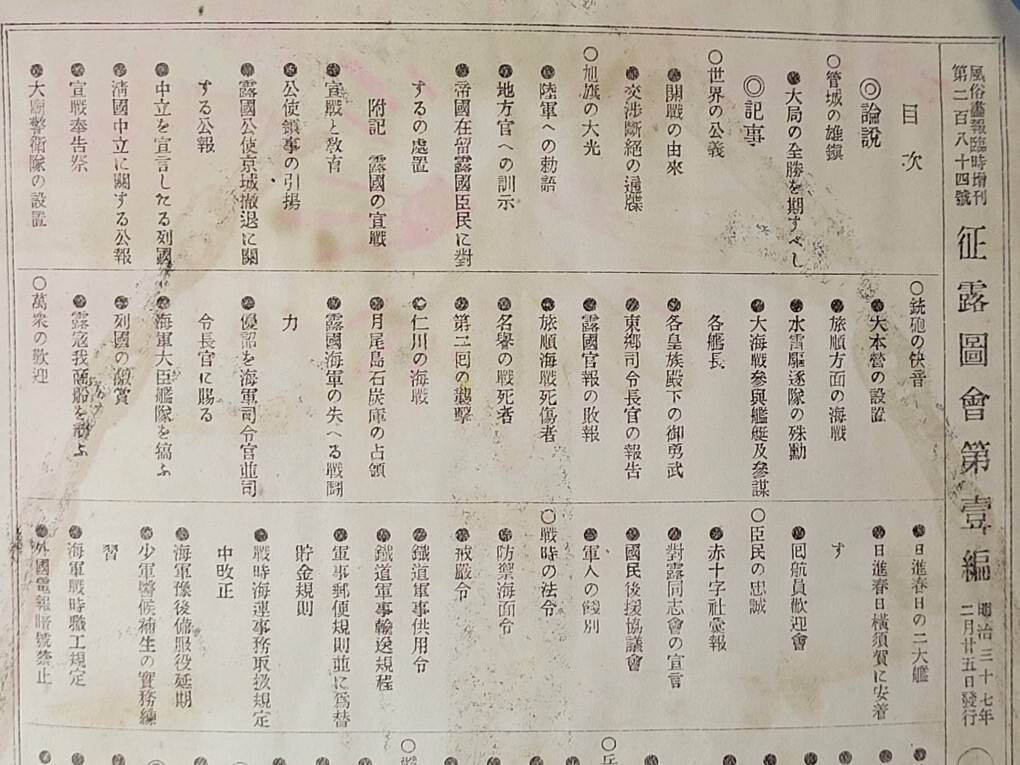 風俗畫報臨時增刊
第二百八十四號
征露圖會第壹編
明治三十七年
二月廿五日發行
目次
◎論說
○管城の雄鎭
●大局の全勝を期すべし
◎記事
○世界の公義
●開戰の由來
●交涉斷絕の通牒
○旭旗の大光
●陸軍への勅語
●地方官への訓示
●帝國在留露國臣民に對
するの處置
附記 露國の宣戰
●宣戰と敎育
●公使領事の引揚
●露國公使京城撤退に關
する公報
●中立を宣言したる列國
●淸國中立に關する公報
●宣戰奉告祭
●大廟警衛隊の設置
○銃砲の快音
●大本營の設置
●旅順方面の海戰
●水雷驅逐隊の殊勳
●大海戰參與艦艇及參謀
各艦長
●各皇族殿下の御勇武
●東鄕司令長官の報告
●露國官報の敗報
●旅順海戰死傷者
●名譽の戰死者
●第二回の襲擊
●仁川の海戰
●月尾島石炭庫の占領
●露國海軍の失へる戰鬪
力
●優詔を海軍司令官並司
令長官に賜る
●海軍大臣艦隊を犒ふ
●列國の激賞
●露寇我商船を擊ふ
○萬衆の歡迎
●日進春日の二大艦
●日進春日橫須賀に安着
す
●回航員歡迎會
○臣民の忠誠
●赤十字社彙報
●對露同志會の宣言
●國民後援協議會
●軍人の餞別
○戰時の法令
●防禦海面令
●戒嚴令
●鐵道軍事供用令
●鐵道軍事輸送規程
●軍事郵便規則並に爲替
貯金規則
●戰時海運事務取扱規定
中改正
●海軍豫後備服役延期
●少軍醫候補生の實務練
習
●海軍戰時職工規定
●外國電報暗號禁止